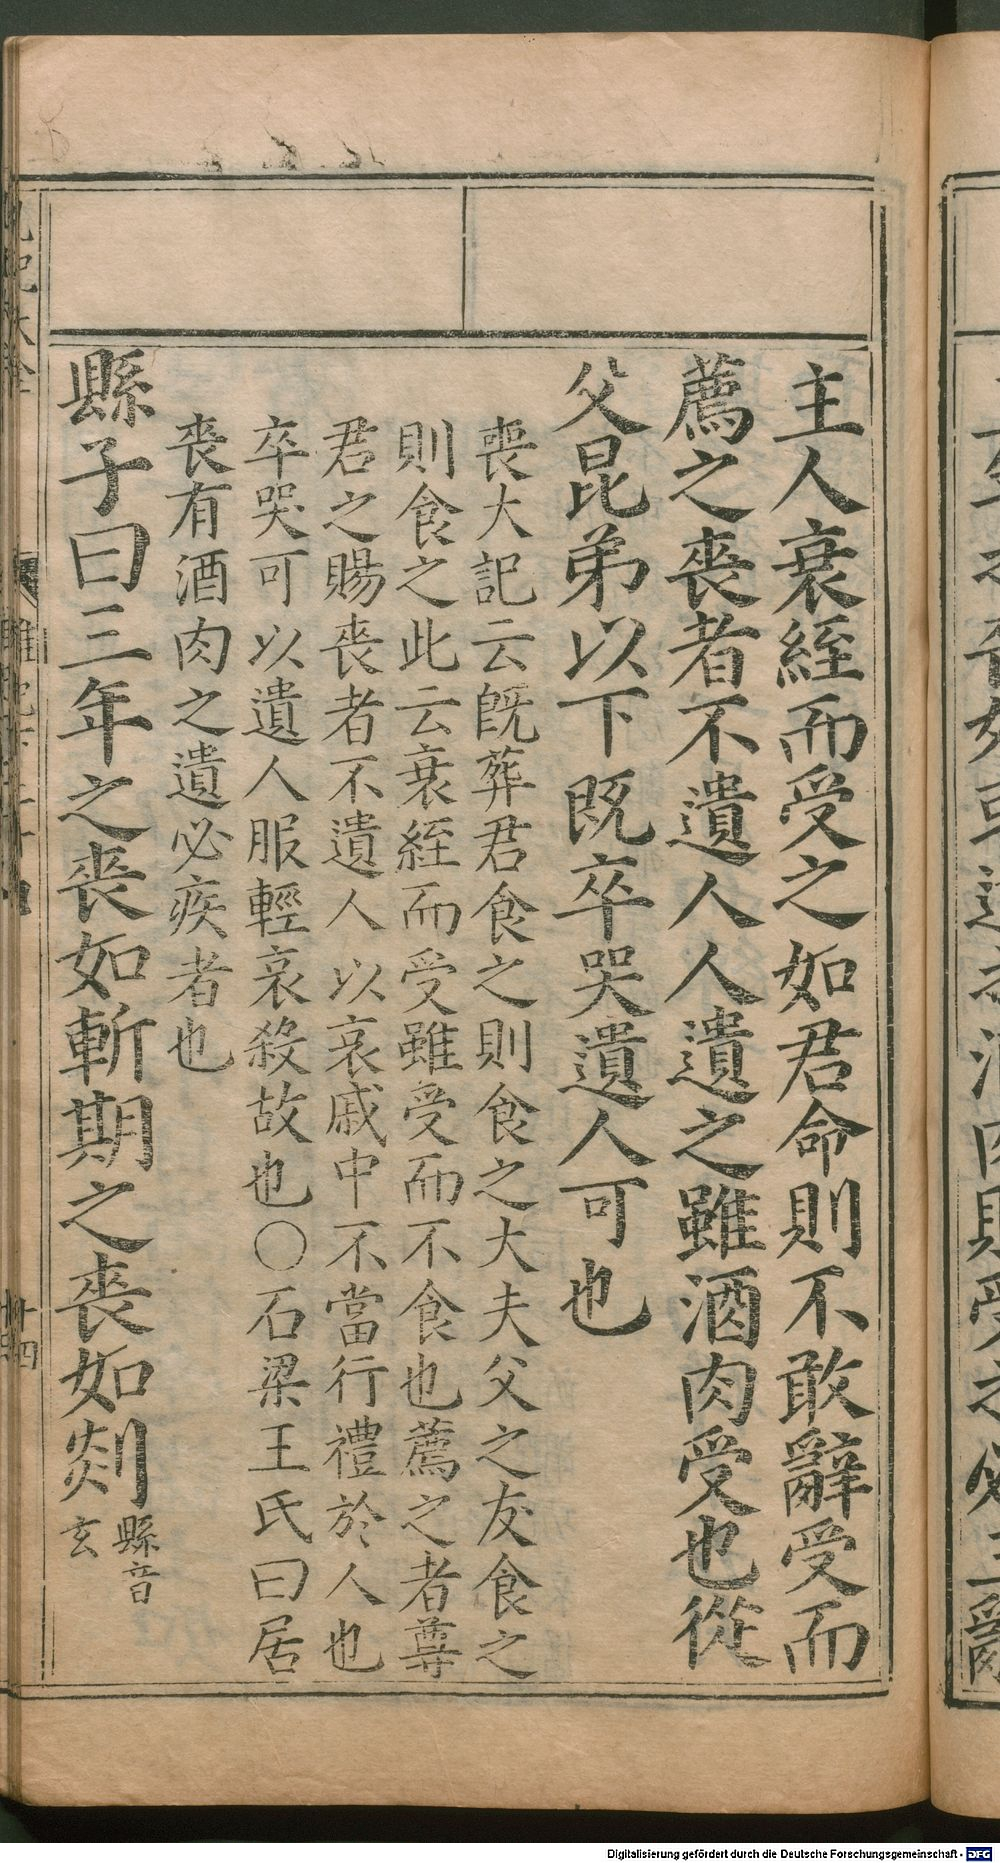 主人衰絰而受之如君命則不敢辭受而
薦之喪者不遺人人遺之雖酒肉受也從
父昆弟以下既卒哭遺人可也
喪大記云既葬君食之則食之大夫父之友食之
則食之此云衰絰而受雖受而不食也薦之者尊
君之賜喪者不遺人以哀戚中不當行禮於人也
卒哭可以遺人服輕哀殺故也○石梁王氏曰居
喪有酒肉之遺必疾者也
縣子曰三年之喪如斬期之喪如剡縣音玄
十四
Digitalisierung gefördert durch die Deutsche Forschungsgemeinschaft - DFG